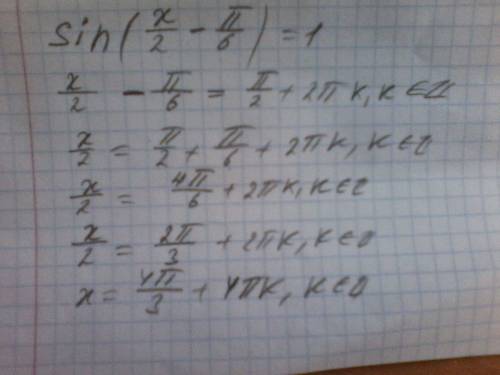 sin(x/2 - π/6) = 1
x/2 - π/6 = π/2 + 2πk, k ∈ Z
x/2 = π/2 + π/6 + 2πk, k ∈ Z
x/2 = 4π/6 + 2πk, k ∈ Z
x/2 = 2π/3 + 2πk, k ∈
x = 4π/3 + 4πk, k ∈